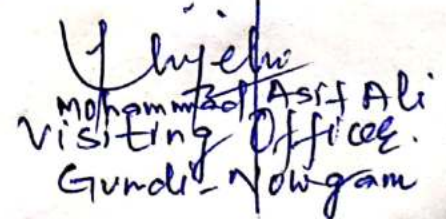 Mohammad Asif Ali
Visiting Officer.
Gundi-Nowgam